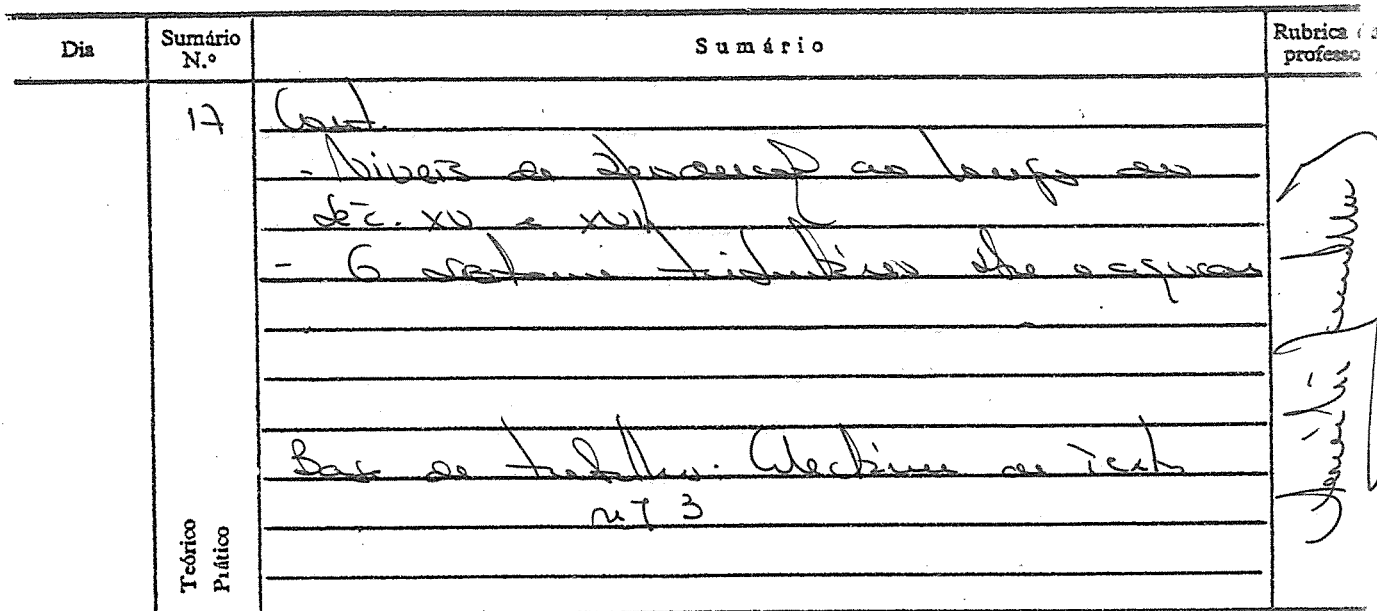 Dia
Sumário N.º
Sumário
Rubrica professo
17
Cont.
- Níveis de ao longo do
séc. XV e XVI
- O sistema tributário
Base de trabalho: Colectânea de Text
nº 3
Teórico
Prático